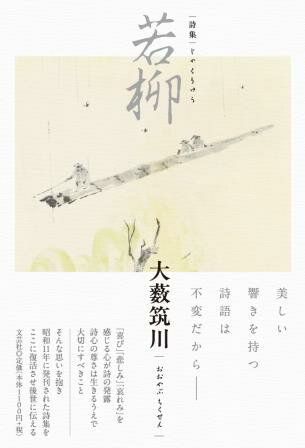 詩集
じゃくりゅう
若柳
美しい
響きを持つ
詩語は
不変だから――
大薮筑川
おおやぶ ちくせん
「喜び」「悲しみ」「哀れみ」を
感じる心が詩の発露
詩心の尊さは生きるうえで
大切にすべきこと
そんな思いを抱き
昭和11年に発刊された詩集を
ここに復活させ後世に伝える
文芸社◎定価(本体1100円+税)